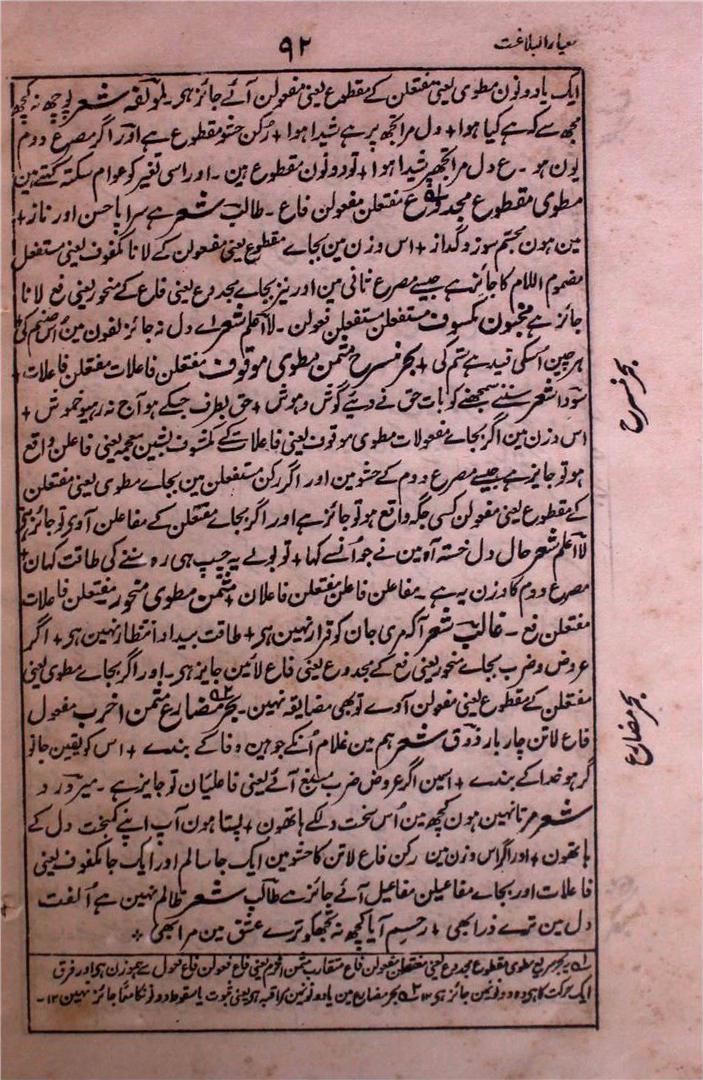 معیار البلاغت
۹۲
ایک یا دونون مطوی یعنی مفتعلن کے مقطوع یعنی مفعولن آئے جائز ہی۔ لمؤلفہ شعر پوچھ نہ کچھ
مجھ سے کہ ہے کیا ہوا + دل مرا تجھ پر ہے شیدا ہوا + رکن حشو مقطوع ہے اور اگر مصرع دوم
یون ہو۔ ع دل مرا تجھپر شیدا ہوا + تو دونون مقطوع ہین۔ اور اسی تغیر کو عوام سکتہ کہتے ہین
مطوی مقطوع مجدوع مفتعلن مفعولن فاع۔ طالب شعر ہے سراپا حسن اور ناز +
مین ہون مجسم سوز و گداز + اس وزن مین بجاے مقطوع یعنی مفعولن کے لانا مکفوف یعنی مستفعل
مضموم اللام کا جائز ہے جیسے مصرع ثانی مین اور نیز بجاے مجدوع یعنی فاع کے منحور یعنی فع لانا
جائز ہے مخبون مکسوف مستفعلن مستفعلن فعولن۔ لا اعلم شعر اے دل نہ جا زلفون مین اُس صنم کی
ہر چین اسکی قید ہے ستم کی + بحر منسرح مثمن مطوی موقوف مفتعلن فاعلات مفتعلن فاعلات +
سودا شعر سننے سمجھنے کو بات حق نے دیئے گوش و ہوش + حق بطرف جسکے ہو آج نہ رہیو خموش +
اس وزن مین اگر بجاے مفعولات مطوی موقوف یعنی فاعلات کے مکشوف بشین معجمہ یعنی فاعلن واقع
ہو تو جایز ہے جیسے مصرع دوم کے حشو مین اور اگر رکن مستفعلن مین بجاے مطوی یعنی مفتعلن
کے مقطوع یعنی مفعولن کسی جگہ واقع ہو تو جائز ہے اور اگر بجاے مفتعلن کے مفاعلن آوی تو جائز ہی
لا اعلم شعر حال دل خستہ آہ مین نے جو اُنسے کہا + تو بولے یہ چپ ہی رہ سننے کی طاقت کہان +
مصرع دوم کا وزن یہ ہے۔ مفاعلن فاعلن مفتعلن فاعلان + مثمن مطوی منحور مفتعلن فاعلات
مفتعلن فع۔ غالب شعر آ کہ مری جان کو قرار نہین ہو + طاقت بیداد انتظار نہین ہو + اگر
عروض و ضرب بجاے منحور یعنی فع کے مجدوع یعنی فاع لائین جایز ہی۔ اور اگر بجاے مطوی یعنی
مفتعلن کے مقطوع یعنی مفعولن آوے تو بھی مضایقہ نہین۔ بحر مضارع مثمن اخرب مفعول
فاع لاتن چار بار ذوق شعر ہم ہین غلام اُنکے جو ہین وفا کے بندے + اس کو یقین جانو
گر ہو خدا کے بندے + اسمین اگر عروض ضرب مسبغ آئے یعنی فاعلیان تو جایز ہے۔ میر درد
شعر مرتا نہین ہون کچھ مین اُس سخت دل کے ہاتھون + پستا ہون آپ اپنے کمبخت دل کے
ہاتھون + اور اگر اس وزن مین رکن فاع لاتن کا حشو مین ایک جا سالم اور ایک جا مکفوف یعنی
فاعلات اور بجاے مفاعیلن مفاعیل آئے جائز ہے طالب شعر ظالم نہین ہے اُلفت
دل مین ترے ذرا بھی + رحم آیا کچھ نہ تجھکو ترے عشق مین مرا بھی +
بحر منسرح
بحر مضارع
۱ یہ بحر سریع مطوی مقطوع مجدوع یعنی مفتعلن مفعولن فاع متقارب مثمن اثرم یعنی فاع فعولن فاع فعول سے ہموزن ہی اور فرق
ایک حرکت کا ہی وہ دونون مین جائز ہی ۱۲ ۲ بحر مضارع مین یا و نون مین مراقبہ ہی یعنی ثبوت یا سقوط دونو نکا معًا جائز نہین ۱۲۔